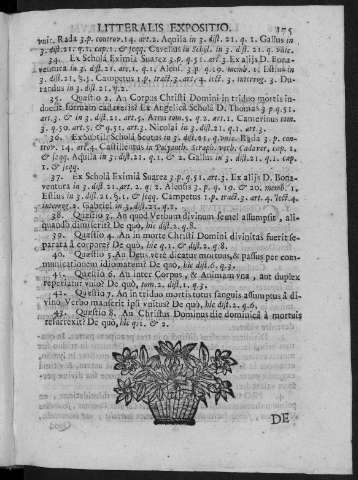 LITTERALIS EXPOSITIO. 175
unic. Rada 3.p. controv. 14. art. 2. Aquila in 3. dist. 21. q. 1. Gallus in
3. dist. 21. q. 1. cap. 1. & seqq. Cavellus in Schol. in 3. dist. 21. q. unic.
34. Ex Scholâ Eximiâ Suarez 3.p. q. 51. art. 3. Ex alijs D. Bona-
ventura in 3. dist. 21. art. 1. q. 1. Alens. 3. p. q. 19. memb. 1. Estius in
3. dist. 21. §. 1. Campetus 1.p. tract. 3. art. 4. lect. 3. memb. 3. Du-
randus in 3. dist. 21. q. 2.
35. Quæstio 2. An Corpus Christi Domini in triduo mortis in-
duerit formam cadaveris? Ex Angelicâ Scholâ D. Thomas 3. p. q. 51.
art. 3. & in 3. dist. 21. art. 5. Arnu tom. 5. q. 2. art. 1. Camerinus tom.
3. q. 50. art. 5. & q. 51. art. 3. Nicolai in 3. dist. 21. q. 1. art. 3.
36. Ex Subtili Scholâ Scotus in 3. dist. 21. q. unic. Rada 3. p. con-
trov. 14. art. 4. Castillientus in Polyanth. Seraph. verb. Cadaver, cap. 2.
& seqq. Aquila in 3. dist. 21. q. 1. & 2. Gallus in 3. dist. 21. q. 1. cap.
1. & seqq.
37. Ex Scholâ Eximiâ Suarez 3. p. q. 51. art. 3. Ex alijs D. Bona-
ventura in 3. dist. 21. art. 2. q. 2. Alensis 3. p. q. 19. & 20. memb. 1.
Estius in 3. dist. 21. §. 1. & seqq. Campetus 1. p. tract. 3. art. 4. lect. 4.
interrog. 2. Gabriel in 3. dist. 21. q. 2.
38. Quæstio 3. An quod Verbum divinum semel assumpsit, ali-
quando dimiserit? De quo, hic dist. 2. q. 8.
39. Quæstio 4. An in morte Christi Domini divinitas fuerit se-
parata à corpore? De quo, hic q. 1. & dist. 2. q. 8.
40. Quæstio 5. An Deus verè dicatur mortuus, & passus per com-
municationem idiomatum? De quo, hic dist. 6. q. 3.
41. Quæstio 6. An inter Corpus, & Animam una, aut duplex
reperiatur unio? De quo, tom. 2. dist. 1. q. 3.
42. Quæstio 7. An in triduo mortis totus sanguis assumptus à di-
vino Verbo manserit ipsi unitus? De quo, hic dist. 2. q. 6.
43. Quæstio 8. An Christus Dominus die dominicâ à mortuis
resurrexit? De quo, hic q. 1. & 2.
DE